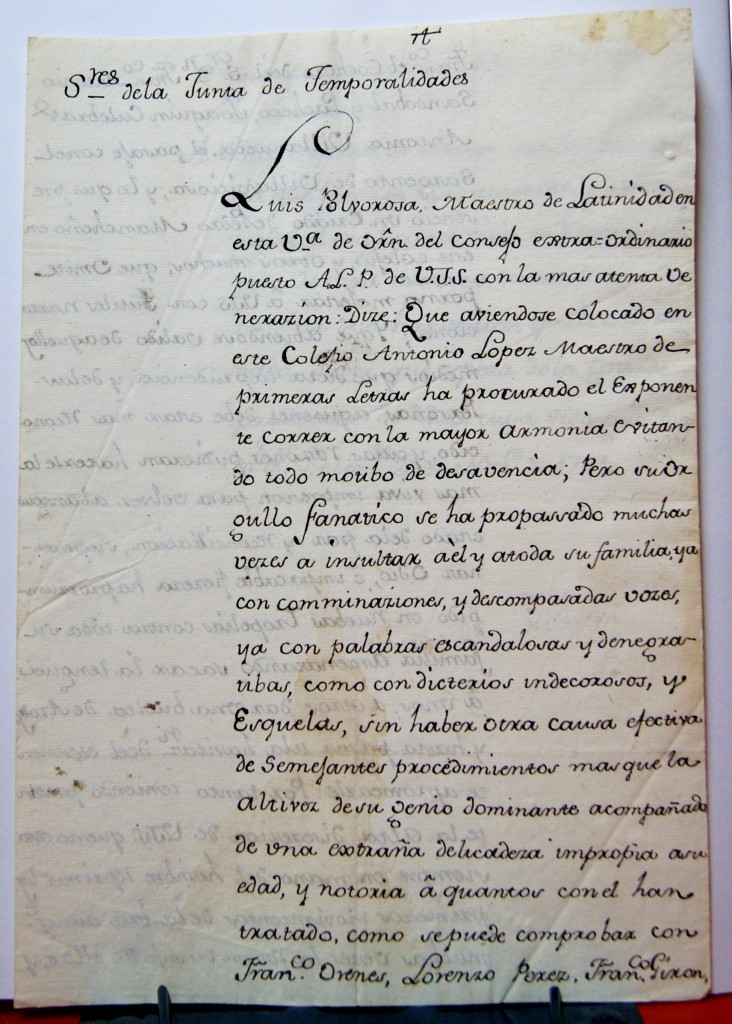 Sres dela Junta de Temporalidades
Luis Polvorosa, Maestro de Latinidad en
esta Va de Orn. del Consejo extra=ordinario
puesto A.L.P. de V.S.S. con la mas atenta Ve
nerazion: Dize: Que aviendose colocado en
este Colejio Antonio Lopez Maestro de
primeras Letras ha procurado el Exponen
te correr con la mayor armonia evitan-
do todo motibo de desavencia; Pero su Or
gullo fanatico se ha propassado muchas
vezes a insultar à èl y atoda su familia, ya
con comminaziones, y descompasadas vozes,
ya con palabras escandalosas y denegra-
tibas, como con dicterios indecorosos, y
Esquelas, sin haber otra causa efectiva
de Semejantes procedimientos mas que la
altivez de su genio dominante acompañado
de una extraña delicadeza impropia asu
edad, y notoria â quantos con el han
tratado, como sepuede comprobar con
Franco. Orenes, Lorenzo Perez, Franco Giron,